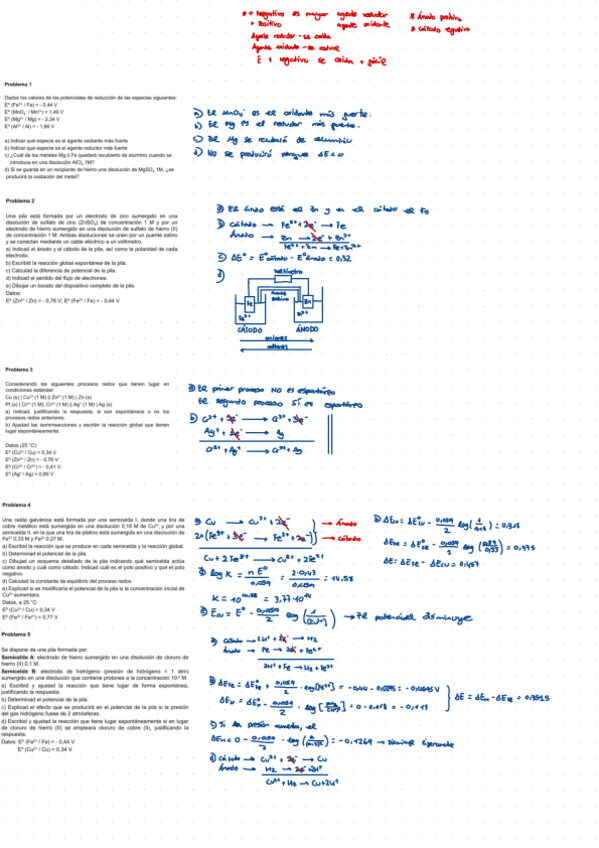 * + Negativo es mayor agente reductor
+ Positivo agente oxidante
Agente reductor - se oxida
Agente oxidante - se reduce
E + negativo se oxida + fácil
* Ánodo positivo
* Cátodo negativo
Problema 1
Dados los valores de los potenciales de reducción de las especies siguientes:
Eº (Fe²⁺ / Fe) = - 0,44 V
Eº (MnO₄⁻ / Mn²⁺) = 1,49 V
Eº (Mg²⁺ / Mg) = - 2,34 V
Eº (Al³⁺ / Al) = - 1,66 V
a) Indicar qué especie es el agente oxidante más fuerte
b) Indicar qué especie es el agente reductor más fuerte
c) ¿Cuál de los metales Mg ó Fe quedará recubierto de aluminio cuando se
introduce en una disolución AlCl₃ 1M?
d) Si se guarda en un recipiente de hierro una disolución de MgSO₄ 1M, ¿se
producirá la oxidación del metal?
a) El MnO₄⁻ es el oxidante más fuerte.
b) El Mg es el reductor más fuerte.
c) El Mg se recubrirá de aluminio
d) No se producirá porque ΔE<0
Problema 2
Una pila está formada por un electrodo de zinc sumergido en una
disolución de sulfato de zinc (ZnSO₄) de concentración 1 M y por un
electrodo de hierro sumergido en una disolución de sulfato de hierro (II)
de concentración 1 M. Ambas disoluciones se unen por un puente salino
y se conectan mediante un cable eléctrico a un voltímetro.
a) Indicad el ánodo y el cátodo de la pila, así como la polaridad de cada
electrodo.
b) Escribid la reacción global espontánea de la pila.
c) Calculad la diferencia de potencial de la pila.
d) Indicad el sentido del flujo de electrones.
e) Dibujar un boceto del dispositivo completo de la pila.
Datos:
Eº (Zn²⁺ / Zn) = - 0,76 V; Eº (Fe²⁺ / Fe) = - 0,44 V
a) El ánodo está el Zn y en el cátodo el Fe
b) Cátodo → Fe²⁺ + 2e⁻ → Fe
Ánodo → Zn → 2e⁻ + Zn²⁺
Fe²⁺ + Zn → Fe + Zn²⁺
c) ΔEº = Eºcátodo - Eºánodo = 0,32
d)
voltímetro
puente
salino
Fe
Zn
Fe²⁺
Zn²⁺
CÁTODO
ÁNODO
aniones
cationes
Problema 3
Considerando los siguientes procesos redox que tienen lugar en
condiciones estándar:
Cu (s) | Cu²⁺ (1 M) || Zn²⁺ (1 M) | Zn (s)
Pt (s) | Cr²⁺ (1 M), Cr³⁺ (1 M) || Ag⁺ (1 M) | Ag (s)
a) Indicad, justificando la respuesta, si son espontáneos o no los
procesos redox anteriores.
b) Ajustad las semirreacciones y escribir la reacción global que tienen
lugar espontáneamente.
Datos (25 °C):
Eº (Cu²⁺ / Cu) = 0,34 V
Eº (Zn²⁺ / Zn) = - 0,76 V
Eº (Cr³⁺ / Cr²⁺) = - 0,41 V;
Eº (Ag⁺ / Ag) = 0,80 V
a) El primer proceso NO es espontáneo
El segundo proceso SÍ es espontáneo
Ag⁺ + 1e⁻ → Ag
Cr²⁺ + Ag⁺ → Cr³⁺ + Ag
Problema 4
Una celda galvánica está formada por una semicelda I, donde una tira de
cobre metálico está sumergida en una disolución 0,16 M de Cu²⁺, y por una
semicelda II, en la que una tira de platino está sumergida en una disolución de
Fe²⁺ 0,33 M y Fe³⁺ 0,27 M.
a) Escribid la reacción que se produce en cada semicelda y la reacción global.
b) Determinad el potencial de la pila.
c) Dibujad un esquema detallado de la pila indicando qué semicelda actúa
como ánodo y cuál como cátodo. Indicad cuál es el polo positivo y qué el polo
negativo.
d) Calculad la constante de equilibrio del proceso redox.
e) Explicad si se modificaría el potencial de la pila si la concentración inicial de
Cu²⁺ aumentara.
Datos, a 25 °C:
Eº (Cu²⁺ / Cu) = 0,34 V
Eº (Fe³⁺ / Fe²⁺) = 0,77 V
a) Cu → Cu²⁺ + 2e⁻ → Ánodo
→ Cátodo
Cu + 2Fe³⁺ → Cu²⁺ + 2Fe²⁺
log K = n Eº / 0,059 = 2·0,43 / 0,059 = 14,58
→ El potencial disminuye
Problema 5
Se dispone de una pila formada por:
Semicelda A: electrodo de hierro sumergido en una disolución de cloruro de
hierro (II) 0,1 M.
Semicelda B: electrodo de hidrógeno (presión de hidrógeno = 1 atm)
sumergido en una disolución que contiene protones a la concentración 10⁻² M.
a) Escribid y ajustad la reacción que tiene lugar de forma espontánea,
justificando la respuesta.
b) Determinad el potencial de la pila.
c) Explicad el efecto que se producirá en el potencial de la pila si la presión
del gas hidrógeno fuese de 2 atmósferas.
d) Escribid y ajustad la reacción que tiene lugar espontáneamente si en lugar
de cloruro de hierro (II) se empleara cloruro de cobre (II), justificando la
respuesta.
Datos: Eº (Fe²⁺ / Fe) = - 0,44 V
Eº (Cu²⁺ / Cu) = 0,34 V.
a) Cátodo → 2H⁺ + 2e⁻ → H₂
Ánodo → Fe → 2e⁻ + Fe²⁺
2H⁺ + Fe → H₂ + Fe²⁺
c) Si la presión aumenta, el
d) Cátodo → Cu²⁺ + 2e⁻ → Cu
Ánodo → H₂ → 2e⁻ + 2H⁺
Cu²⁺ + H₂ → Cu + 2H⁺